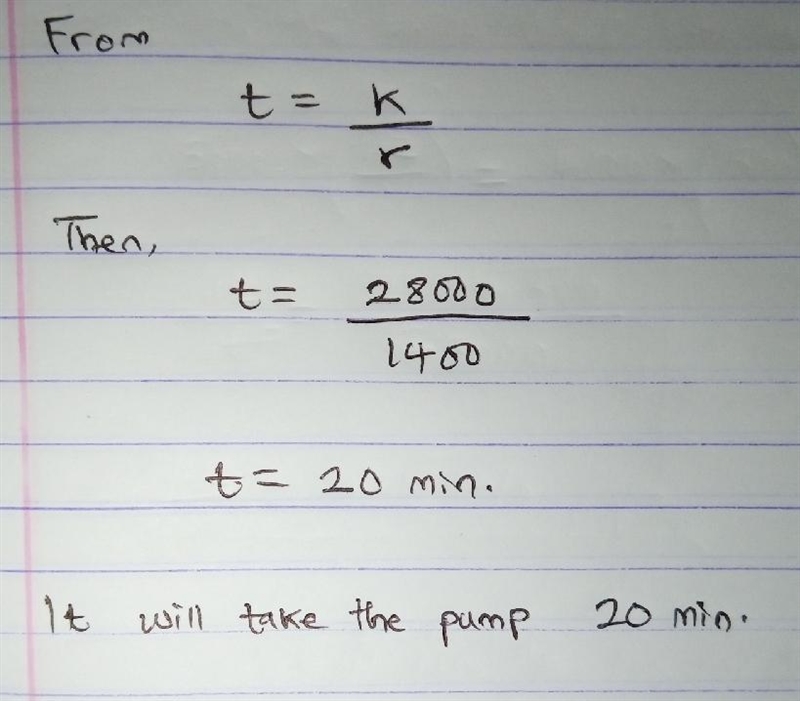 From
t = K
r
Then,
t = 28000
1400
t = 20 min.
It will take the pump 20 min.